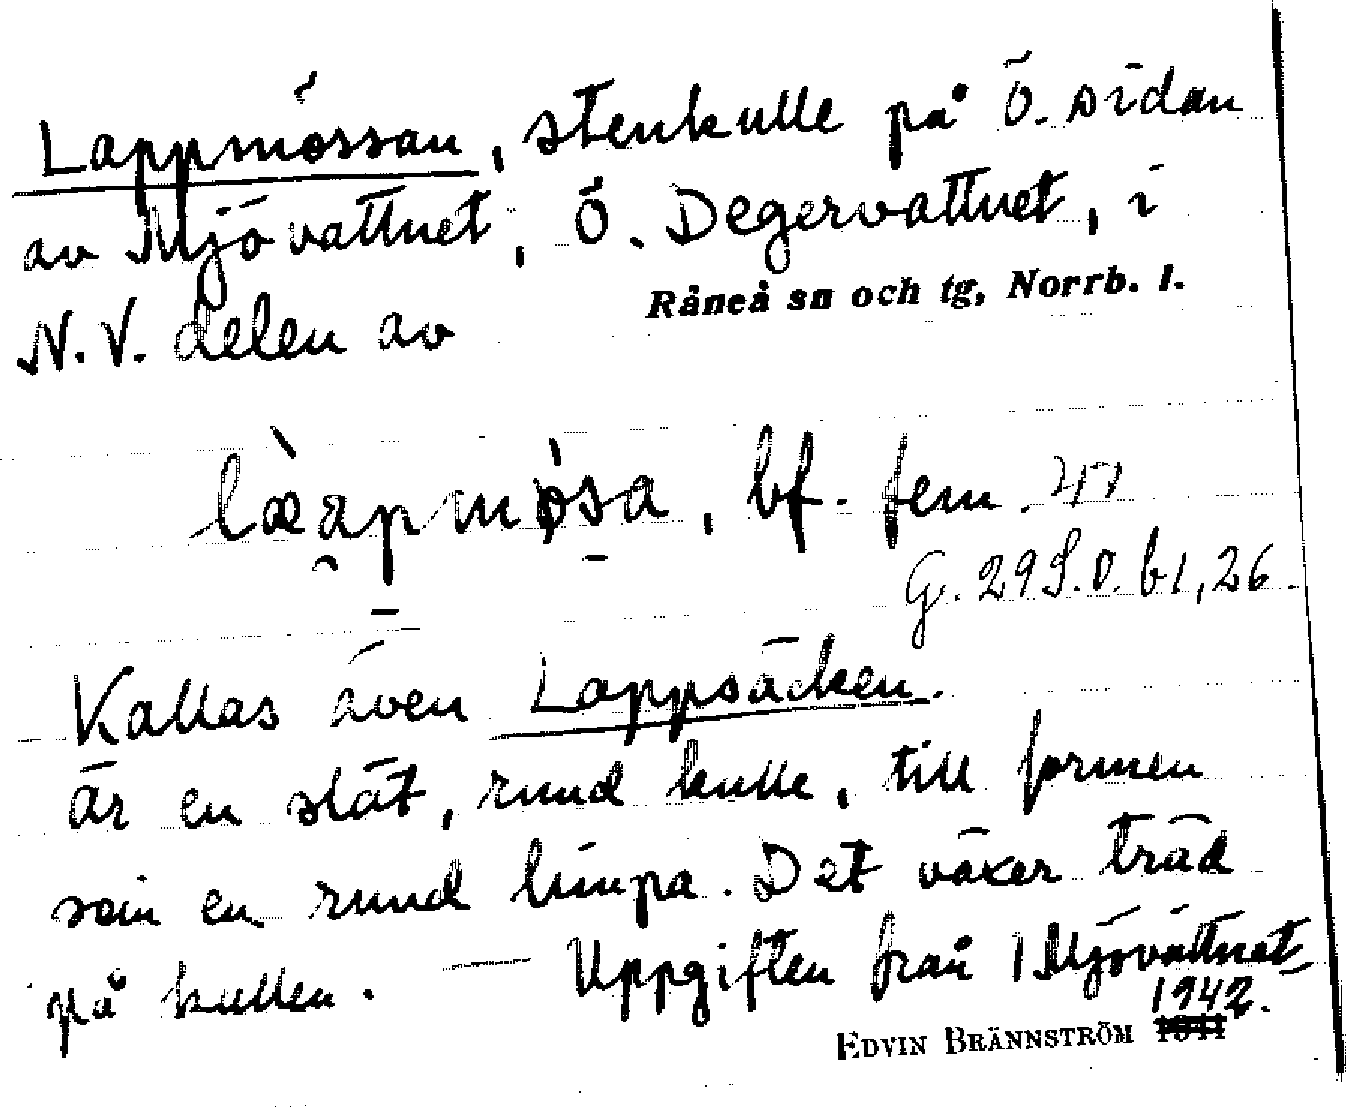 Lappmössan, stenkulle på ö. sidan
av Mjövattnet, Ö. Degervattnet, i
N.V. delen av Råneå sn och tg, Norrb. l.
bf. fem. 47
G. 29 S.O. b1, 26.
Kallas även Lappsäcken.
Är en slät, rund kulle, till formen
som en rund limpa. Det växer träd
på kullen. — Uppgiften från 1 Mjövattnet
1942.
EDVIN BRÄNNSTRÖM 1941